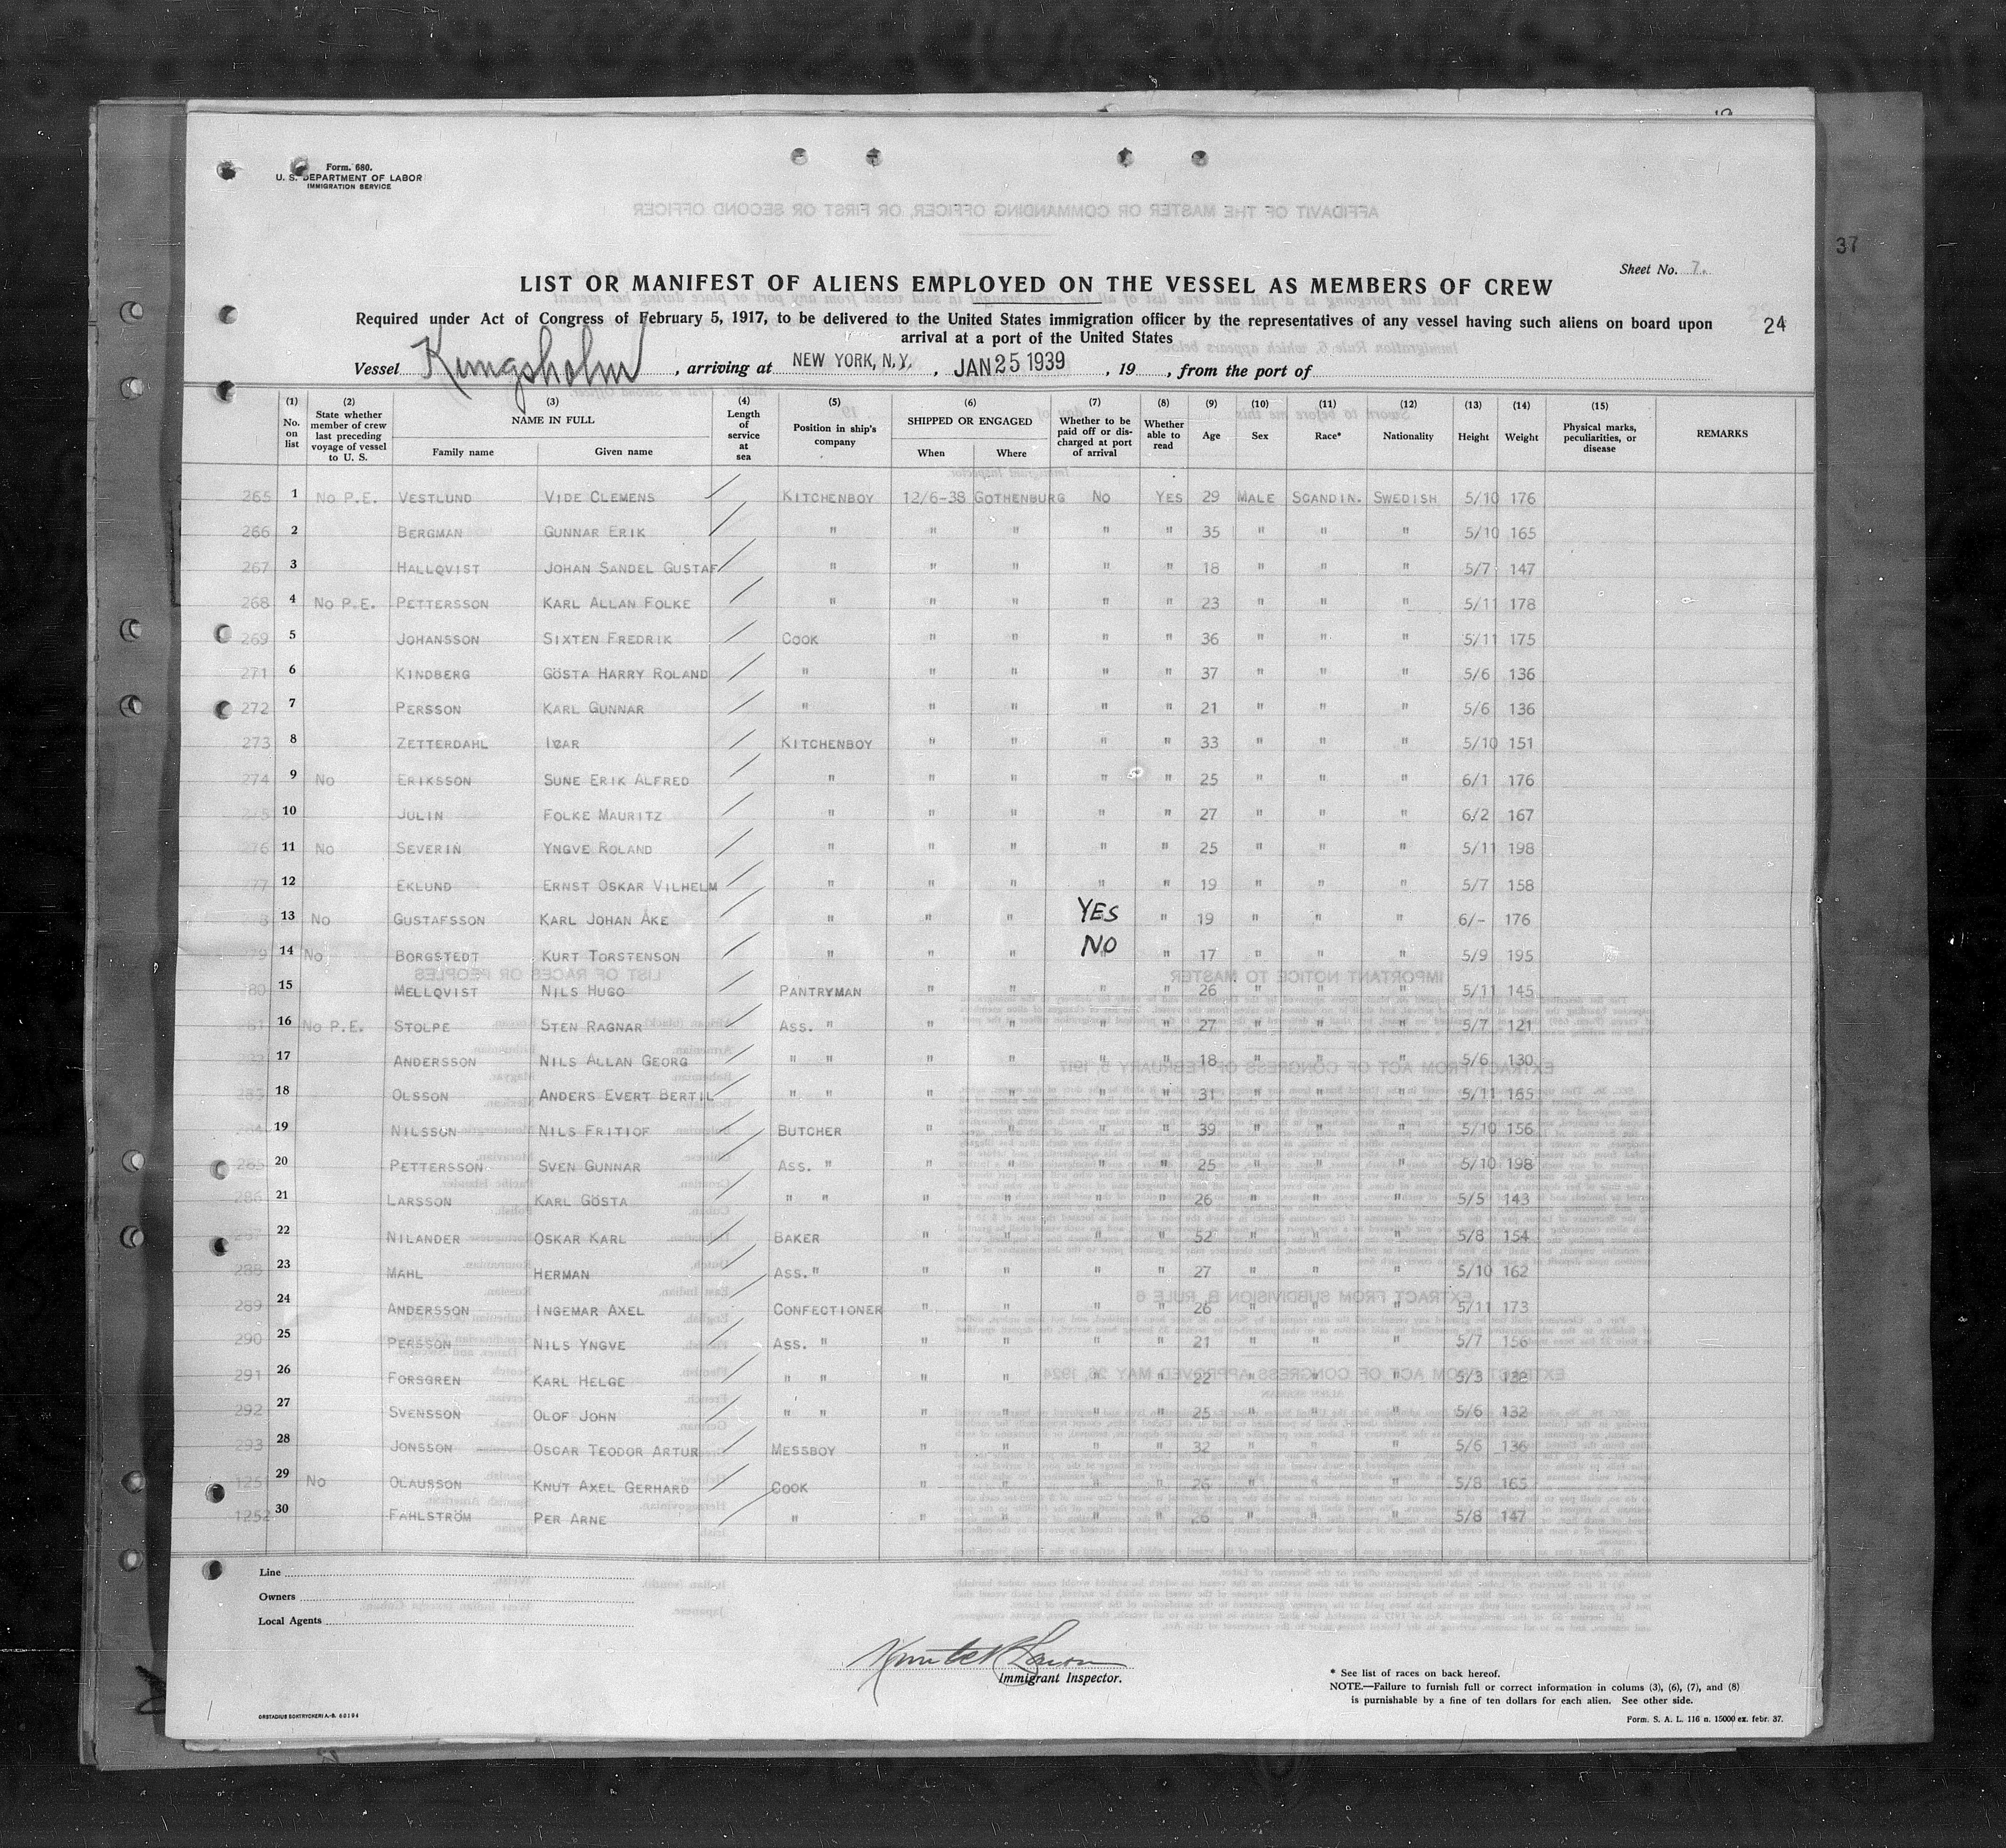 Form. 680.
U. S. DEPARTMENT OF LABOR
IMMIGRATION SERVICE
37
Sheet No. 7.
LIST OR MANIFEST OF ALIENS EMPLOYED ON THE VESSEL AS MEMBERS OF CREW
Required under Act of Congress of February 5, 1917, to be delivered to the United States immigration officer by the representatives of any vessel having such aliens on board upon
24
arrival at a port of the United States
Vessel Kungsholm, arriving at NEW YORK, N.Y., JAN 25 1939, 19 , from the port of
(1) No. on list (2) State whether member of crew last preceding voyage of vessel to U. S. (3) NAME IN FULL Family name Given name (4) Length of service at sea (5) Position in ship's company (6) SHIPPED OR ENGAGED When Where (7) Whether to be paid off or discharged at port of arrival (8) Whether able to read (9) Age (10) Sex (11) Race* (12) Nationality (13) Height (14) Weight (15) Physical marks, peculiarities, or disease REMARKS
265 1 No P.E. VESTLUND VIDE CLEMENS KITCHENBOY 12/6-38 GOTHENBURG No YES 29 MALE SCANDIN. SWEDISH 5/10 176
266 2 BERGMAN GUNNAR ERIK " " " " " 35 " " " 5/10 165
267 3 HALLQVIST JOHAN SANDEL GUSTAF " " " " " 18 " " " 5/7 147
268 4 No P.E. PETTERSSON KARL ALLAN FOLKE " " " " " 23 " " " 5/11 178
269 5 JOHANSSON SIXTEN FREDRIK COOK " " " " 36 " " " 5/11 175
271 6 KINDBERG GÖSTA HARRY ROLAND " " " " " 37 " " " 5/6 136
272 7 PERSSON KARL GUNNAR " " " " " 21 " " " 5/6 136
273 8 ZETTERDAHL IVAR KITCHENBOY " " " " 33 " " " 5/10 151
274 9 No ERIKSSON SUNE ERIK ALFRED " " " " " 25 " " " 6/1 176
275 10 JULIN FOLKE MAURITZ " " " " " 27 " " " 6/2 167
276 11 No SEVERIN YNGVE ROLAND " " " " " 25 " " " 5/11 198
277 12 EKLUND ERNST OSKAR VILHELM " " " " " 19 " " " 5/7 158
13 No GUSTAFSSON KARL JOHAN ÅKE " " " YES " 19 " " " 6/- 176
279 14 No BORGSTEDT KURT TORSTENSON " " " NO " 17 " " " 5/9 195
280 15 MELLQVIST NILS HUGO PANTRYMAN " " " " 26 " " " 5/11 145
281 16 No P.E. STOLPE STEN RAGNAR ASS. " " " " " 27 " " " 5/7 121
17 ANDERSSON NILS ALLAN GEORG " " " " " " 18 " " " 5/6 130
283 18 OLSSON ANDERS EVERT BERTIL " " " " " " 31 " " " 5/11 165
284 19 NILSSON NILS FRITIOF BUTCHER " " " " 39 " " " 5/10 156
285 20 PETTERSSON SVEN GUNNAR ASS. " " " " " 25 " " " 5/10 198
286 21 LARSSON KARL GÖSTA " " " " " " 26 " " " 5/5 143
287 22 NILANDER OSKAR KARL BAKER " " " " 52 " " " 5/8 154
288 23 MAHL HERMAN ASS. " " " " " 27 " " " 5/10 162
289 24 ANDERSSON INGEMAR AXEL CONFECTIONER " " " " 26 " " " 5/11 173
290 25 PERSSON NILS YNGVE ASS. " " " " " 21 " " " 5/7 156
291 26 FORSGREN KARL HELGE " " " " " " 22 " " " 5/3
292 27 SVENSSON OLOF JOHN " " " " " " 25 " " " 5/6 132
293 28 JONSSON OSCAR TEODOR ARTUR MESSBOY " " " " 32 " " " 5/6 136
1251 29 No OLAUSSON KNUT AXEL GERHARD COOK " " " " 26 " " " 5/8 165
1252 30 FAHLSTRÖM PER ARNE " " " " " 26 " " " 5/8 147
Line
Owners
Local Agents
Immigrant Inspector.
* See list of races on back hereof.
NOTE.—Failure to furnish full or correct information in colums (3), (6), (7), and (8)
is punishable by a fine of ten dollars for each alien. See other side.
Form. S. A. L. 116 n. 15000 ex. febr. 37.